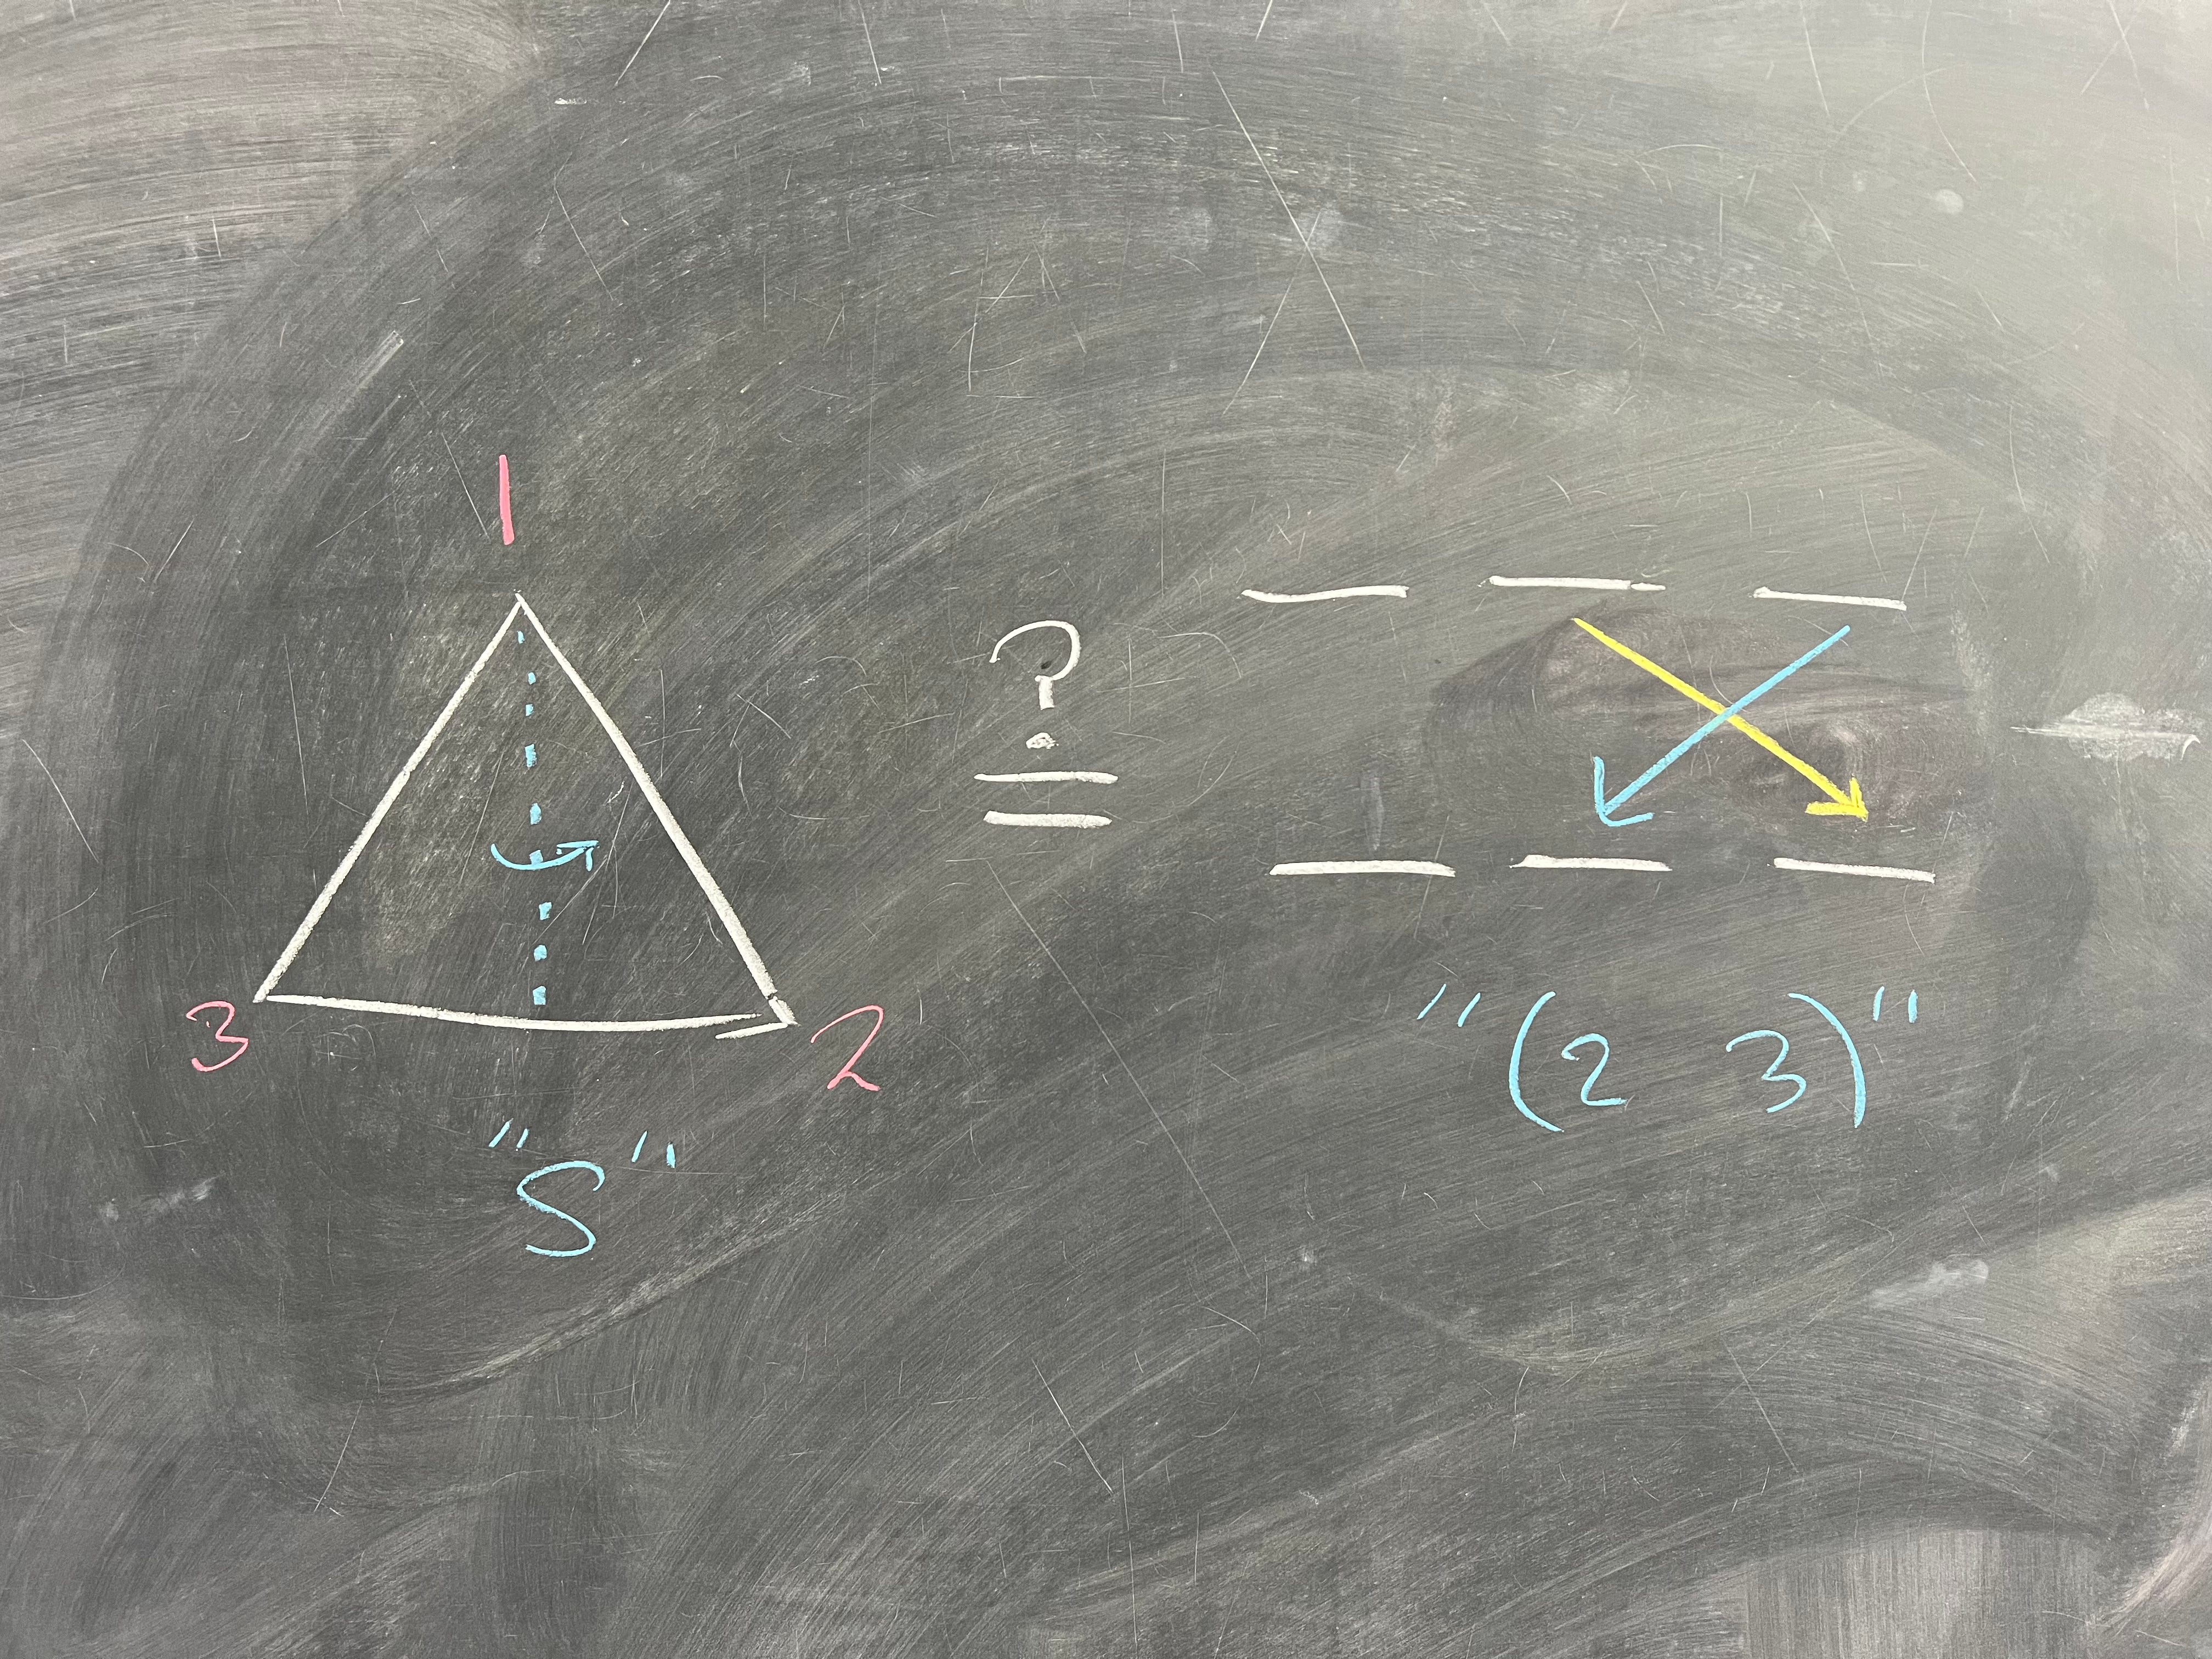 1
?
=
3 2
"(2 3)"
"S"